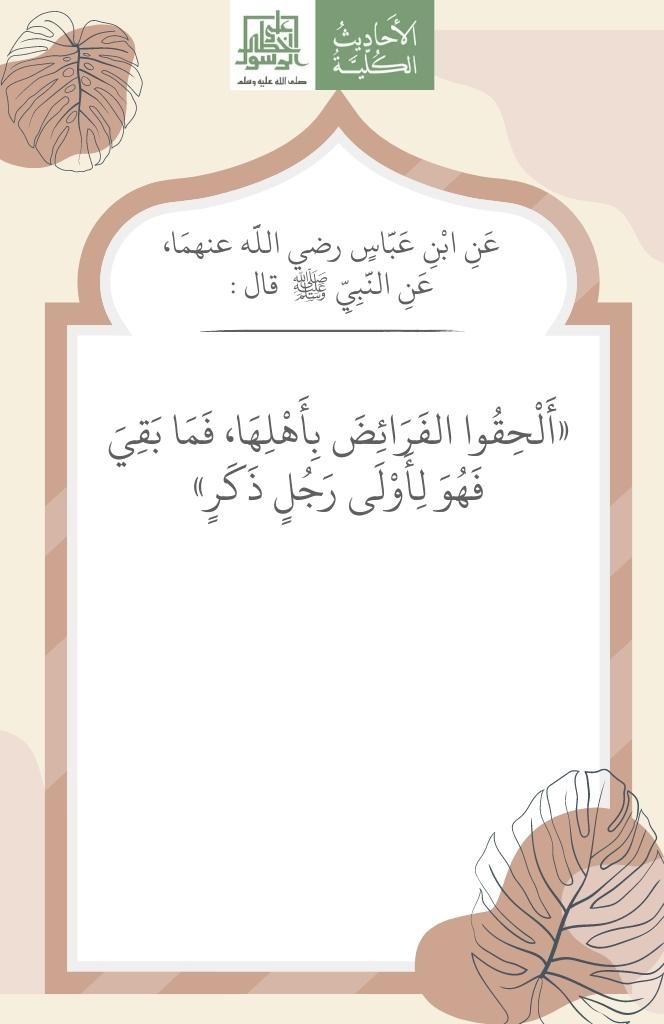 الأَحَادِيثُ
الكُلِّيَّةُ
على
خطى
الرسول
صلى الله عليه وسلم
عَنِ ابْنِ عَبّاسٍ رضي اللّه عنهمَا،
عَنِ النّبِيِّ ﷺ قال :
«أَلْحِقُوا الفَرَائِضَ بِأَهْلِهَا، فَمَا بَقِيَ
فَهُوَ لِأَوْلَى رَجُلٍ ذَكَرٍ»